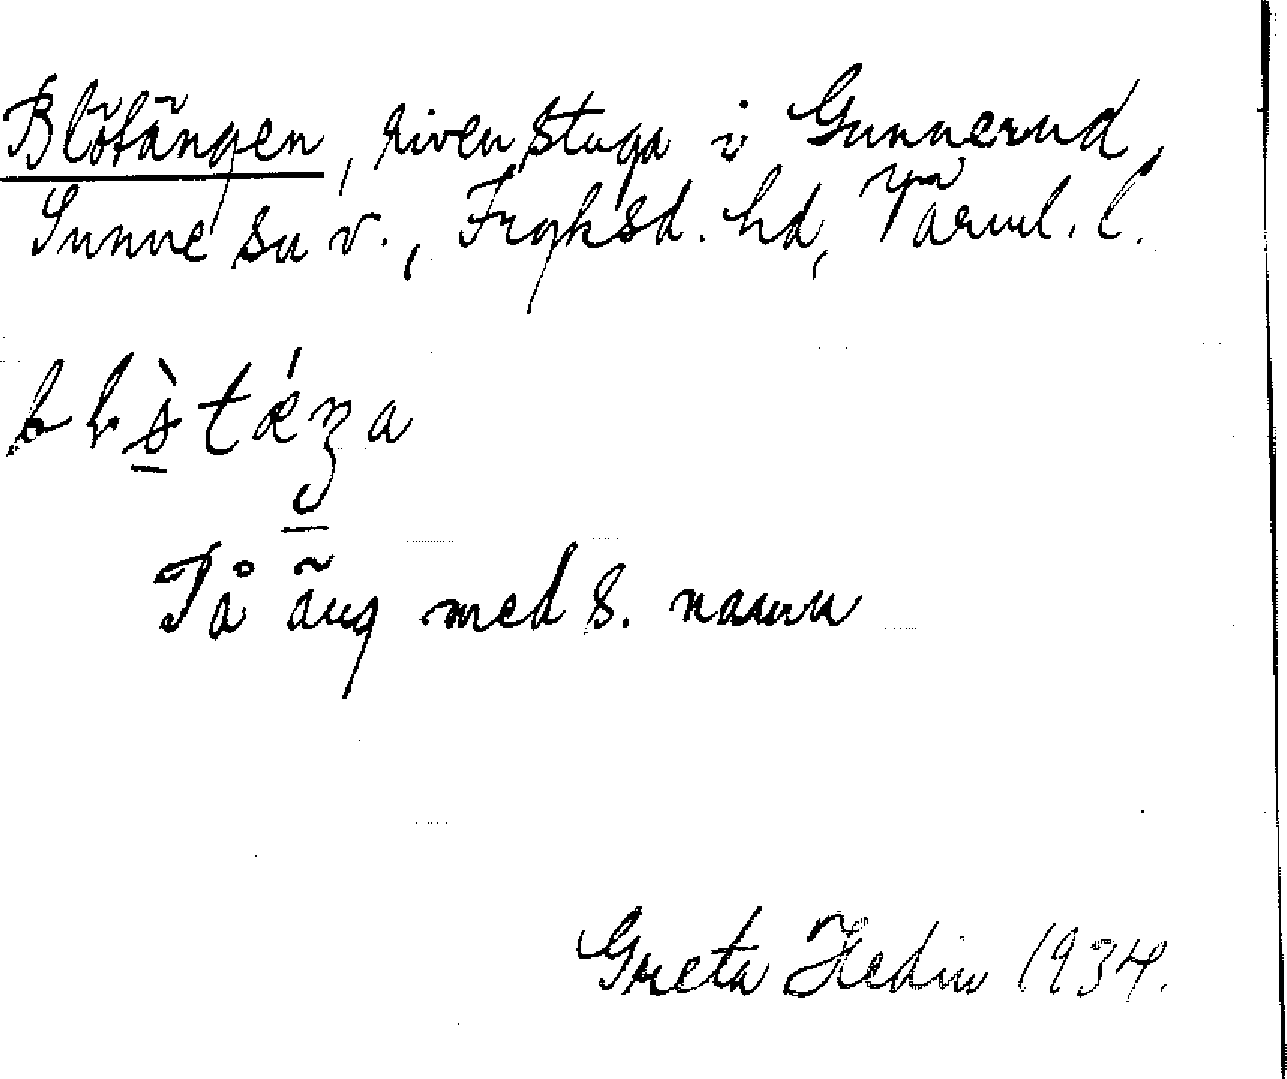 Blötängen, riven stuga i Gunnerud,
Sunne sn v., Fryksd. hd, Värml. l.
På äng med s. namn
Greta Hedin 1934.